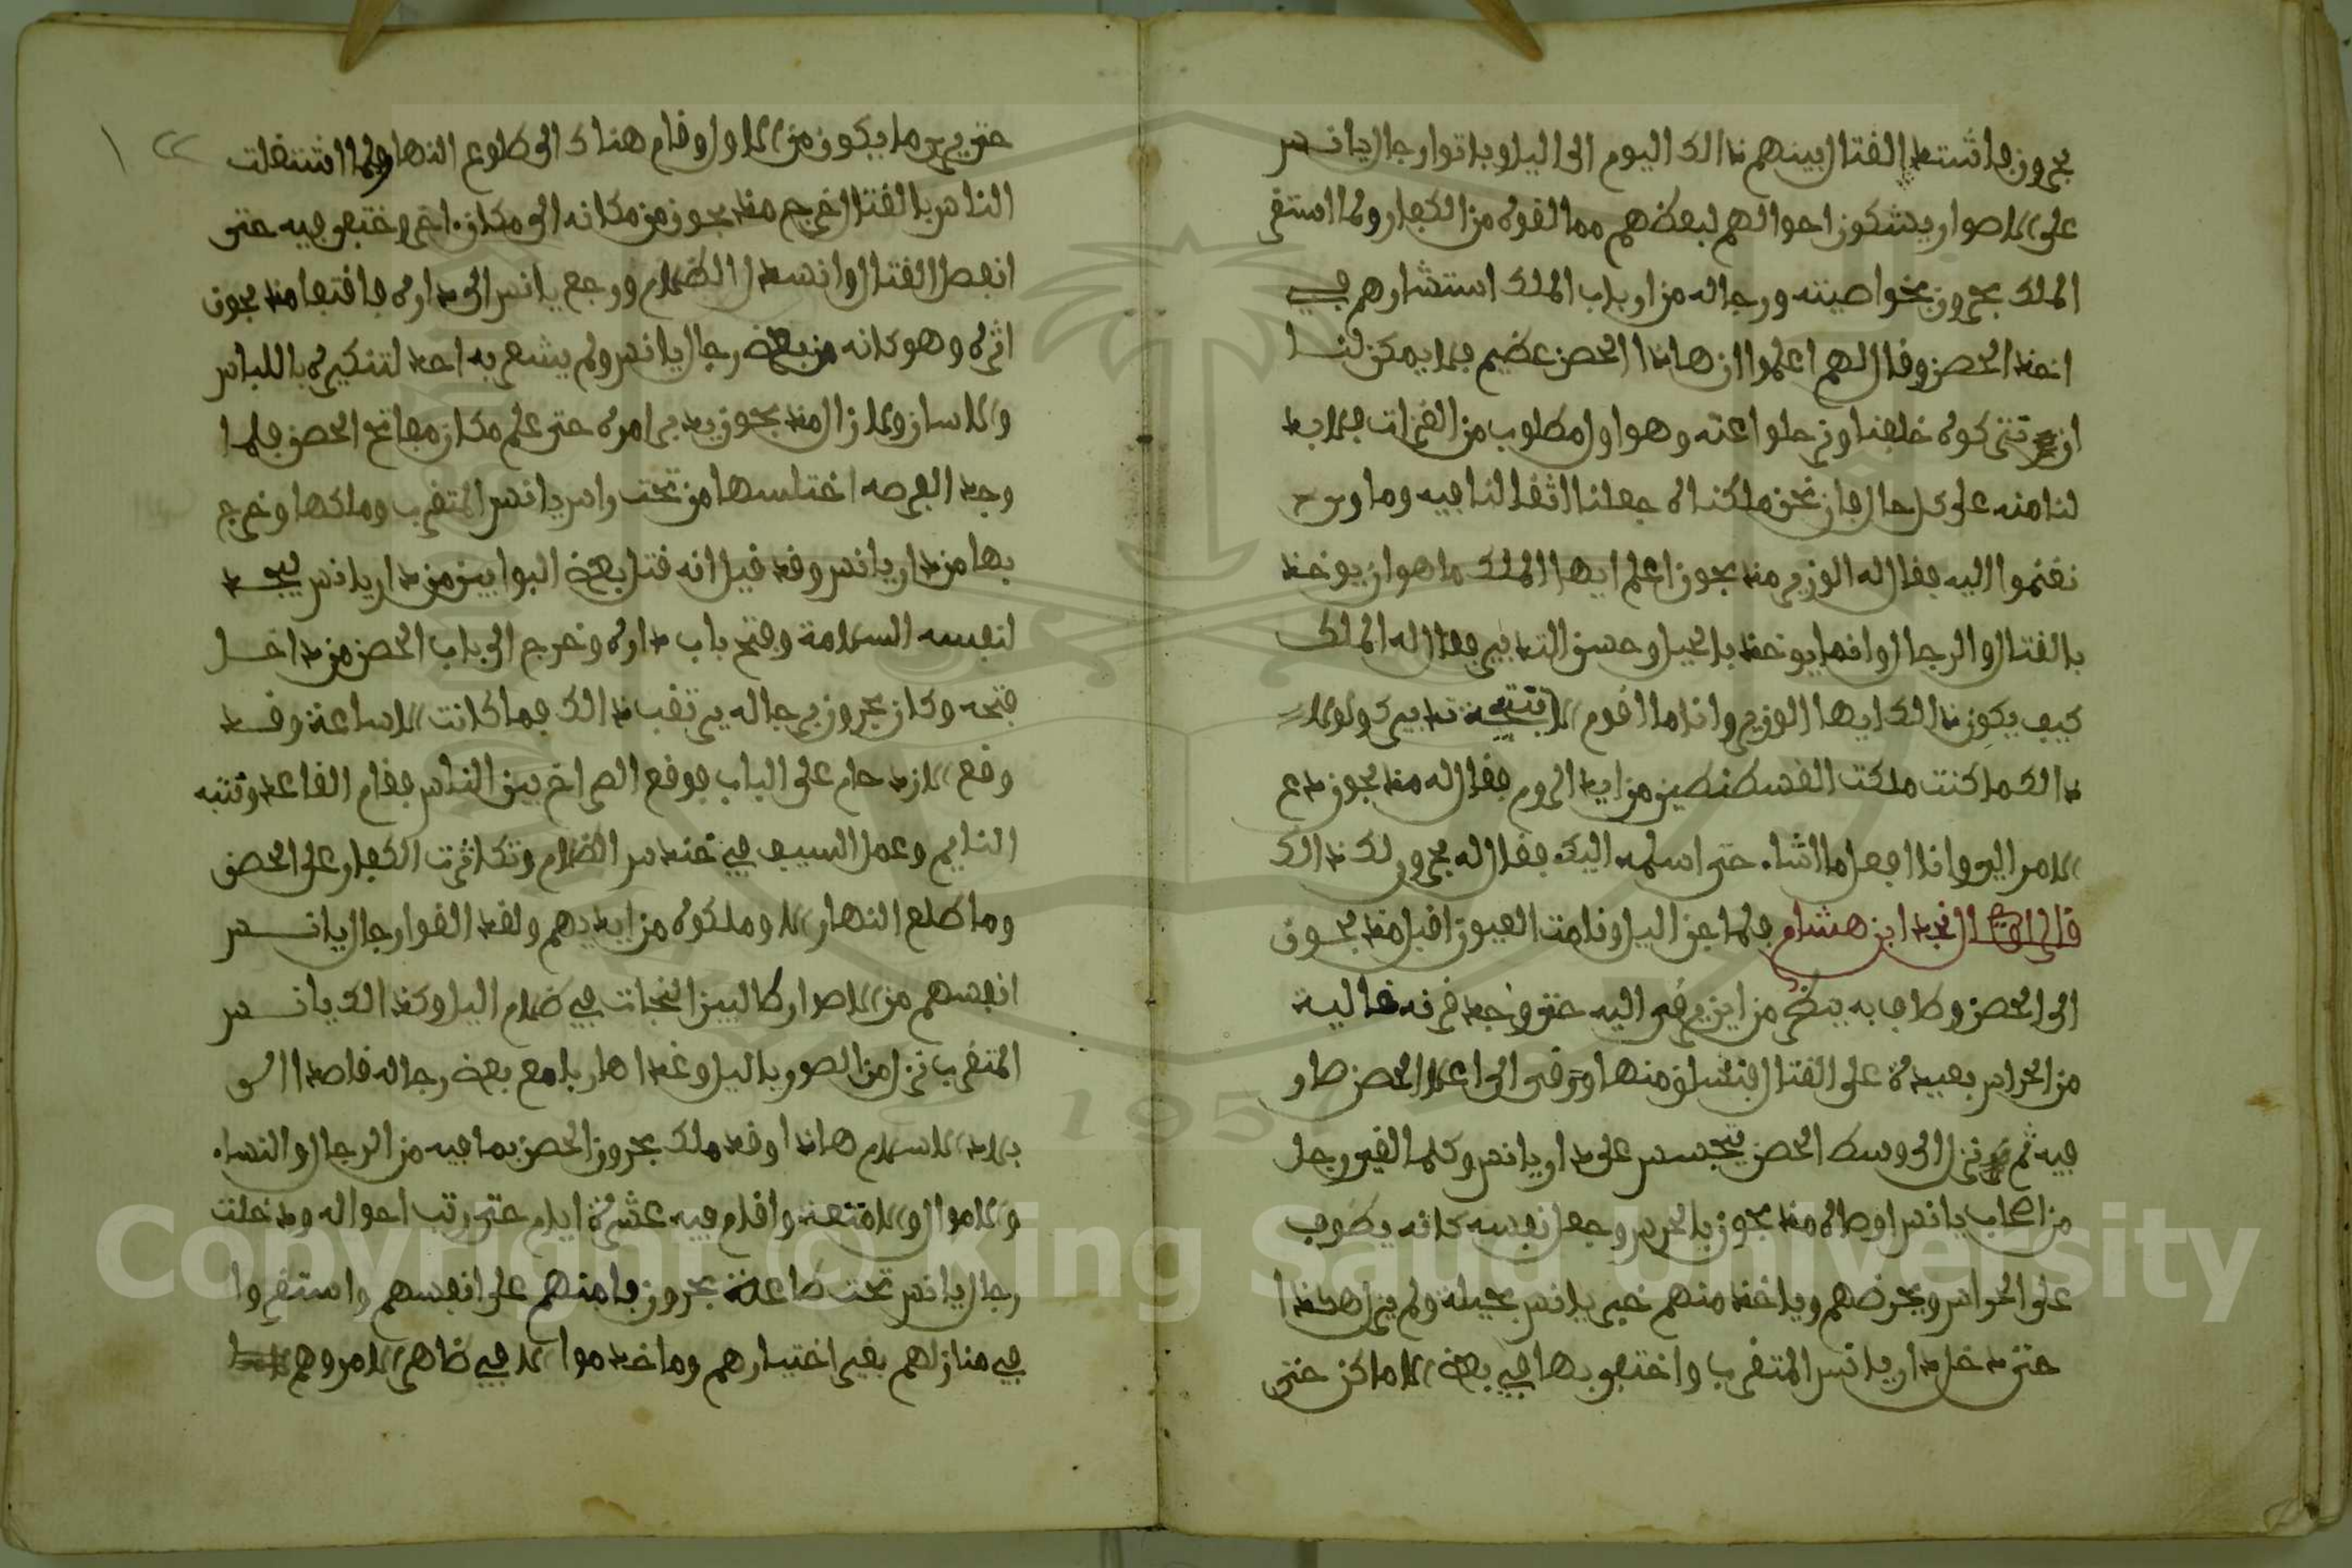 بحرون فاشتد القتال بينهم ذالك اليوم الى اليل وباتوا رجال يانس
على الاصوار يشكون احوالهم لبعضهم مما لقوه من الكفار ولما استقر
الملك بحرون بخواصيته ورجاله من ارباب الملك استشارهم في
اخذ الحصن وقال لهم اعلموا ان هاذا الحصن عضيم فما يمكن لنا
ان نتركوه خلفنا ونرحلوا عنه وهو اول مطلوب من الغزات فلا بد
لنا منه على كل حال فان نحن ملكناه جعلنا اثقالنا فيه وما
نغنموا اليه فقال له الوزير منذ بحون اعلم ايها الملك ما هو ان يوخذ
بالقتال والرجال وانما يوخذ بالحيل وحسن التدبير فقال له الملك
كيف يكون ذالك ايها الوزير وانا ما اقوم الا بنتيجة تدبيرك ولولا
ذالك ما كنت ملكت القسطنطين من ايد الروم فقال له منذ بحون دع
الامر الي وانا افعل ما اشاء حتى اسلمه اليك فقال له بحرور لك ذالك
قال النجد ابن هشام فلما جن اليل ونامت العيون اقبل منذ بحون
الى الحصن وطاف به ينظر من اين يرقى اليه حتى وجد قرنه خالية
من الحراس بعيدة على القتال فتسلق منها وترقى الى اعلا الحصن صار
فيه ثم نزل الى وسط الحصن يتجسس على دار يانس وكلما القى رجل
من اصحاب يانس اوصاه منذ بحون بالحرس وجعل نفسه كانه يطوف
على الحراس ويحرضهم وياخذ منهم خبر يانس بحيلة ولم يزل هكذا
حتى دخل دار يانس المتغرب واختفى بها في بعض الاماكن حتى
حتى يرى ما يكون من الاول وقام هناك الى طلوع النهار ولما اشتغلت
الناس بالقتال خرج منذ بحون من مكانه الى مكان اخر واختفى فيه حتى
انفصل القتال وانسدل الظلام ورجع يانس الى داره فاقتفا منذ بحون
اثره وهو كانه من بعض رجال يانس ولم يشعر به احد لتنكيره باللباس
والاسان ولا زال منذ بحون يدبر امره حتى علم مكان مفاتح الحصن فلما
وجد الفرصه اختلسها من تحت راس يانس المتغرب وملكها وخرج
بها من دار يانس وقد قيل انه قتل بعض البوابين من دار يانس ليجد
لنفسه السلامة وفتح باب داره وخرج الى باب الحصن من داخل
فتحه وكان بحرون برجاله يرتقب ذالك فما كانت الاساعة وقد
وقع الازدحام على الباب فوقع الصراخ بين الناس فقام القاعد وتنبه
النايم وعمل السيف في حندس الظلام وتكاثرت الكفار على الحصن
وما طلع النهار الا وملكوه من ايديهم ولقد القوا رجال يانس
انفسهم من الاصوار طالبين النجات في ضلام اليل وكذالك يانس
المتغرب نزل من الصور باليل وغدا هاربا مع بعض رجاله قاصدا الى
بلاد الاسلام هاذا وقد ملك بحرون الحصن بما فيه من الرجال والنساء
والاموال والامتعة واقام فيه عشرة ايام حتى رتب احواله ودخلت
رجال يانس تحت طاعة بحرون فامنهم على انفسهم واستقروا
في منازلهم بغير اختيارهم وما خدموا الا في ظاهر الامر وهم
Copyright © King Saud University
1957